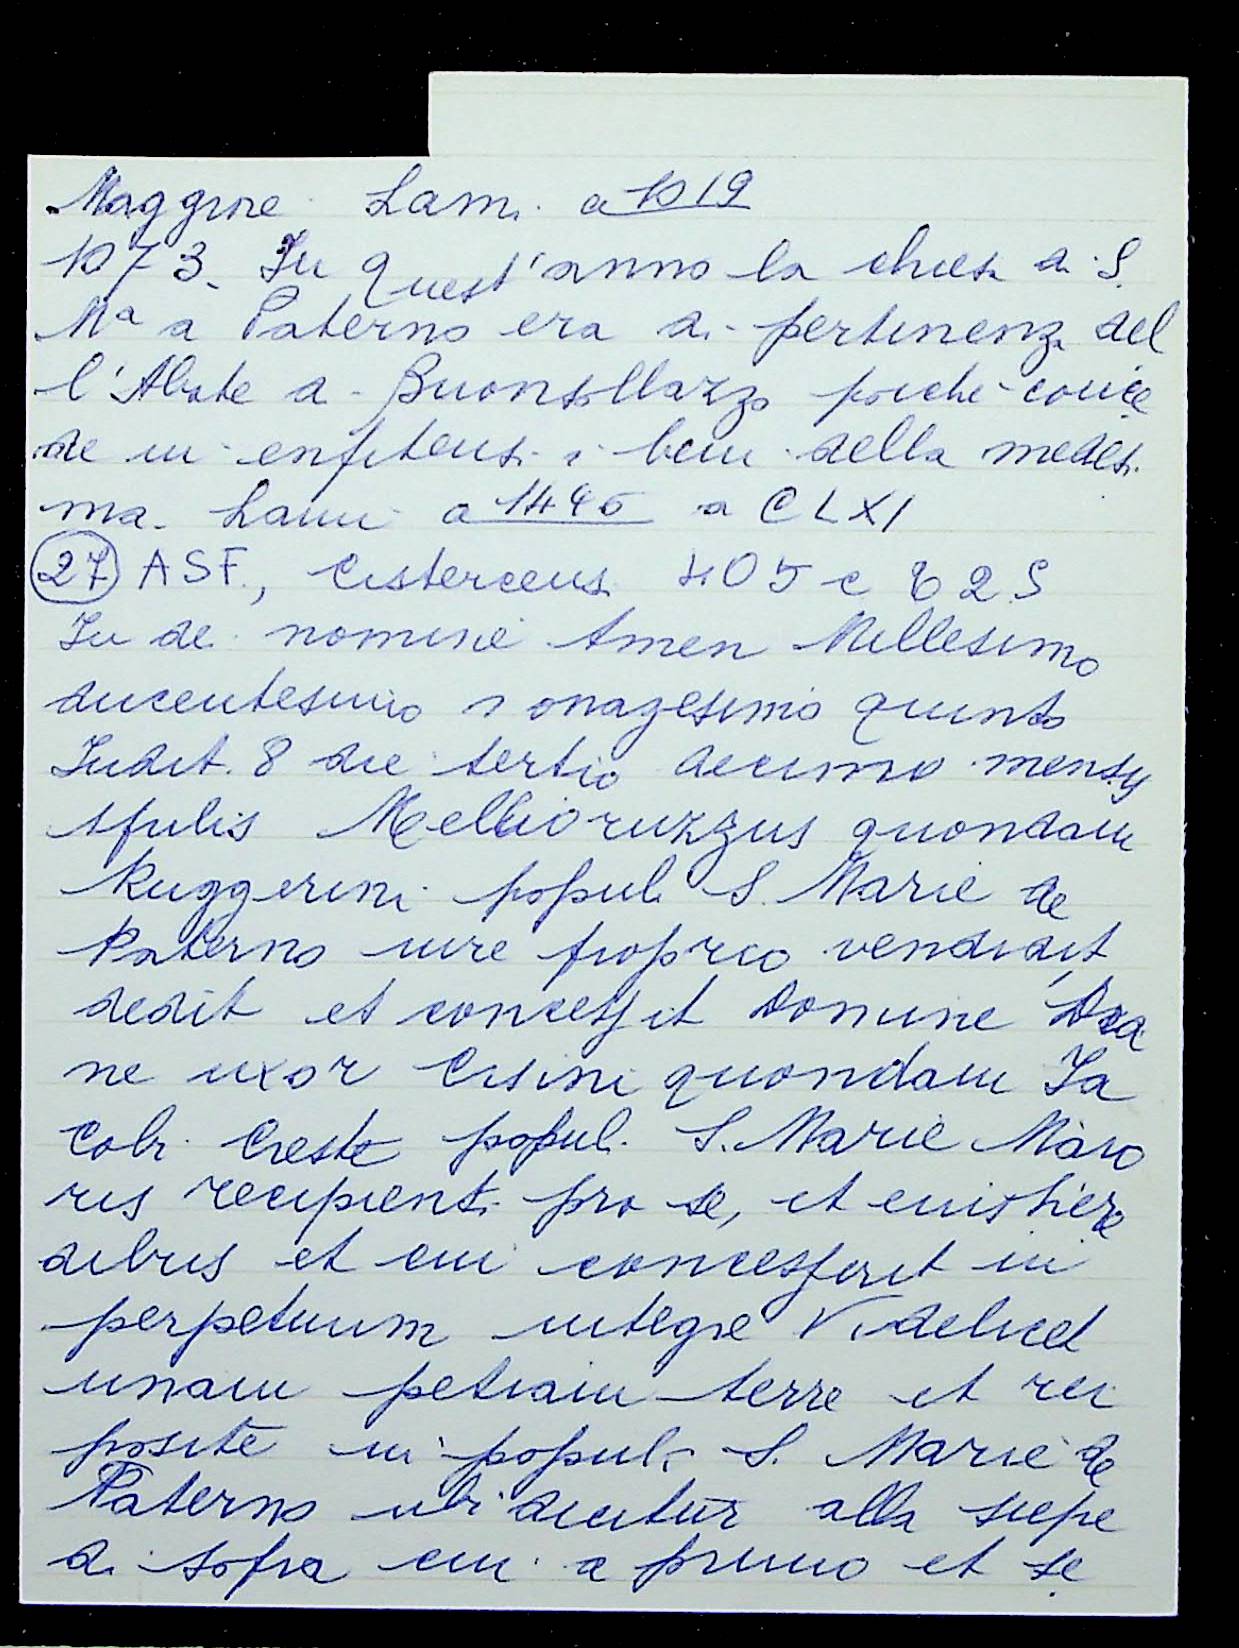 Maggiore Lami a 1019
1073. In quest'anno la chiesa di S.
Mª a Paterno era di pertinenza del
l'Abate di Buonsollazzo poiché conce
de in enfiteusi i beni della medesi
ma. Lami a 1446 a CLXI
27 ASF., Cistercensi 405 c 62 S
In dei nomine Amen Millesimo
ducentesimo nonagesimo quinto
Indit. 8 die tertio decimo mensis
Aprilis Mellioruzzus quondam
Ruggerini populi S. Marie de
Paterno iure proprio vendidit,
dedit et concessit Domine Dia
ne uxor Cisini quondam Ia
cobi Creste populi S. Marie Maio
ris recipienti pro se, et eius here
dibus et cui concesserit in
perpetuum integre Videlicet
unam petiam terre et rei
posite in populi S. Marie de
Paterno ubi dicitur alla siepe
di sopra cui a primo et se